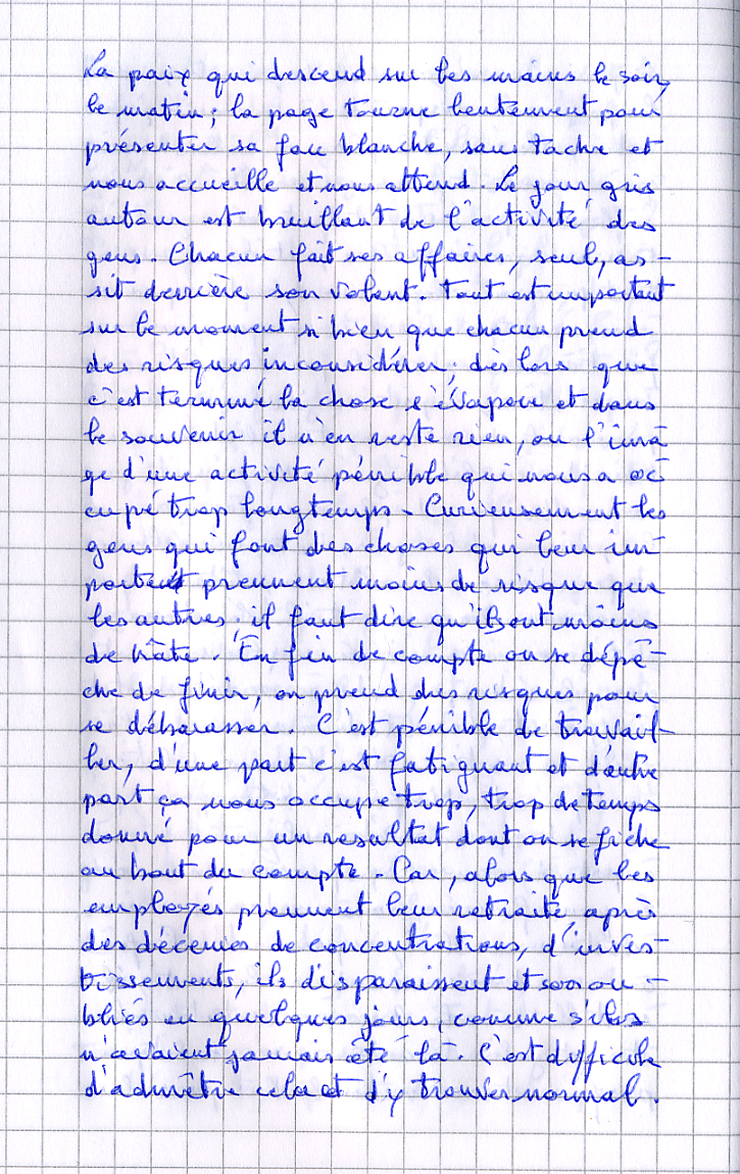 La paix qui descend sur les mains le soir,
le matin ; la page tourne lentement pour
présenter sa face blanche, sans tache et
nous accueille et nous attend. Le jour gris
autour est bruillant de l'activité des
gens. Chacun fait ses affaires, seul, as-
sit derrière son volant. Tout est important
sur le moment si bien que chacun prend
des risques inconsidérer ; dès lors que
c'est terminé la chose s'évapore et dans
le souvenir il n'en reste rien, ou l'ima-
ge d'une activité pénible qui nous a oc-
cupé trop longtemps. Curieusement les
gens qui font des choses qui leur im-
portent prennent moins de risque que
les autres ; il faut dire qu'ils ont moins
de hâte. En fin de compte on se dépê-
che de finir, on prend des risques pour
se débarasser. C'est pénible de travail-
ler, d'une part c'est fatiguant et d'autre
part ça nous occupe trop, trop de temps
donné pour un resultat dont on se fiche
au bout du compte. Car, alors que les
employés prennent leur retraite, après
des décenies de concentrations, d'inves-
tissements, ils disparaissent et son ou-
bliés en quelques jours, comme s'ils
n'avaient jamais été là. C'est difficile
d'admêtre cela et d'y trouver normal.